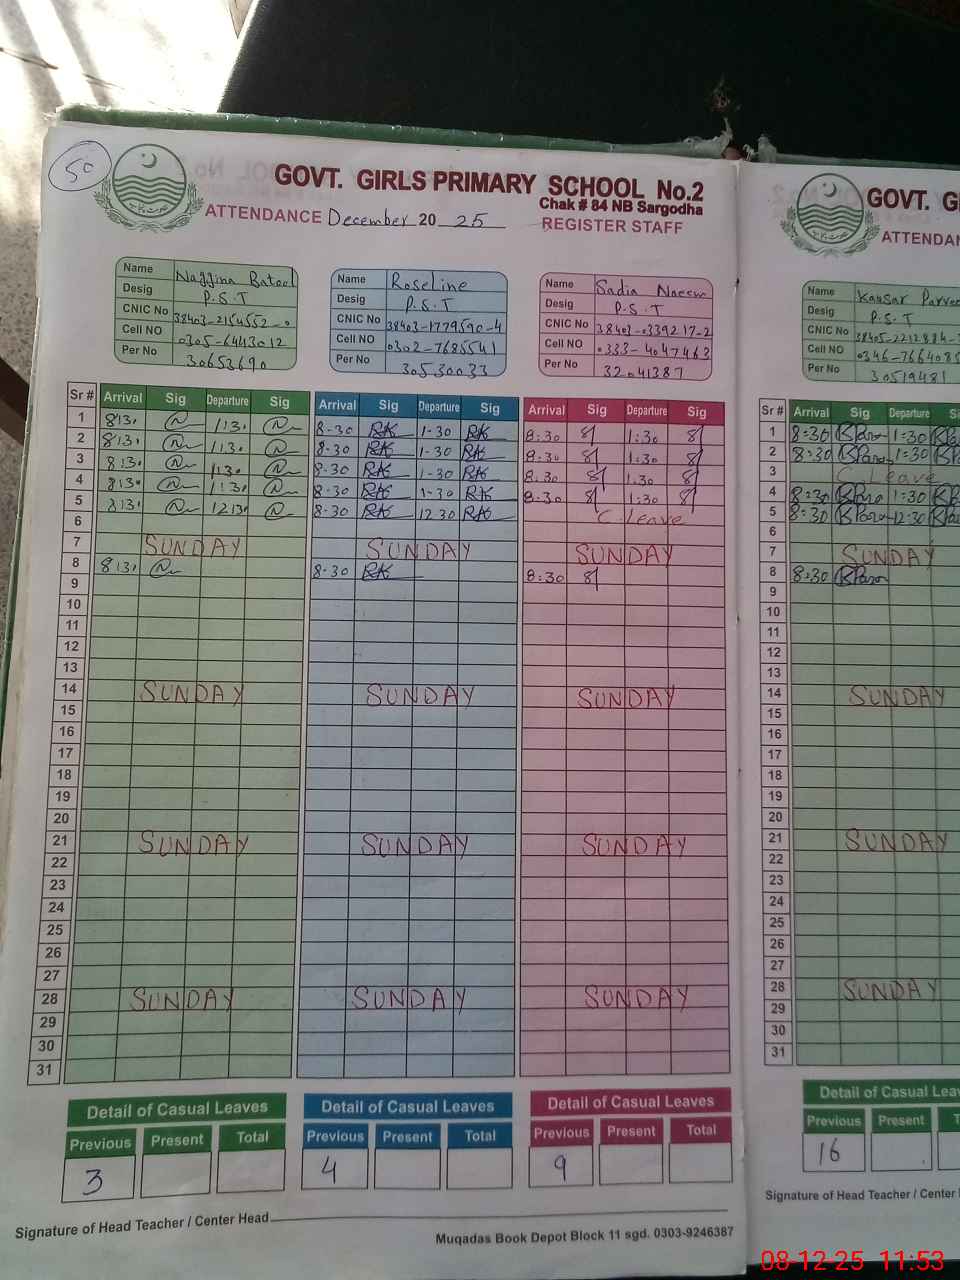 50
GOVT. GIRLS PRIMARY SCHOOL No.2
Chak # 84 NB Sargodha
ATTENDANCE December 20 25 REGISTER STAFF
Name Naggina Batool
Desig P.S.T
CNIC No 38403-2154552-0
Cell NO 0305-6443012
Per No 30653690
Name Roseline
Desig P.S.T
CNIC No 38403-1779590-4
Cell NO 0302-7685541
Per No 30530033
Name Sadia Naeem
Desig P.S.T
CNIC No 38403-0339217-2
Cell NO 0333-4047463
Per No 32041387
Sr # Arrival Sig Departure Sig Arrival Sig Departure Sig Arrival Sig Departure Sig
1 8:30 1:30 8-30 RK 1-30 RK 8:30 1:30
2 8:30 1:30 8-30 RK 1-30 RK 8:30 1:30
3 8:30 1:30 8-30 RK 1-30 RK 8:30 1:30
4 8:30 1:30 8-30 RK 1-30 RK 8:30 1:30
5 8:30 12:30 8-30 RK 12 30 RK C.Leave
6
7 SUNDAY SUNDAY SUNDAY
8 8:30 8-30 RK 8:30
9
10
11
12
13
14 SUNDAY SUNDAY SUNDAY
15
16
17
18
19
20
21 SUNDAY SUNDAY SUNDAY
22
23
24
25
26
27
28 SUNDAY SUNDAY SUNDAY
29
30
31
Detail of Casual Leaves Detail of Casual Leaves Detail of Casual Leaves
Previous Present Total Previous Present Total Previous Present Total
3 4 9
Signature of Head Teacher / Center Head
Muqadas Book Depot Block 11 sgd. 0303-9246387
GOVT.
Name Kausar
Desig P.S.T
CNIC No 38405-2212884-
Cell NO 0346-766408
Per No 30519481
Sr # Arrival Sig Departure
1 8:30 1:30
2 8:30 1:30
3 C.Leave
4 8:30 1:30
5 8:30 12:30
6
7 SUNDAY
8 8:30
9
10
11
12
13
14 SUNDAY
15
16
17
18
19
20
21 SUNDAY
22
23
24
25
26
27
28 SUNDAY
29
30
31
Detail of Casual
Previous Present
16
Signature of Head Teacher / Center
08-12-25 11:53